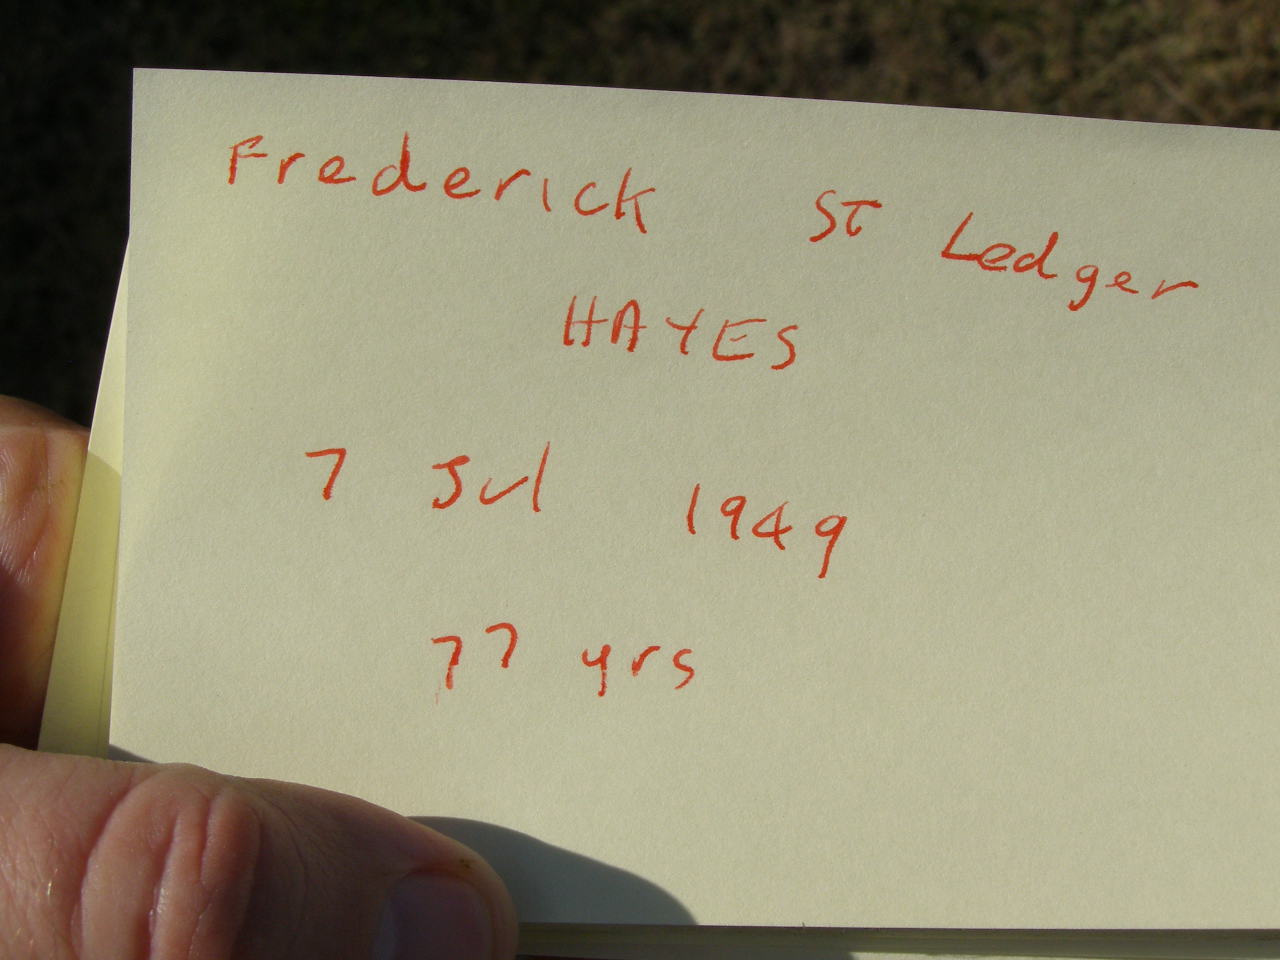 Frederick St Ledger
HAYES
7 Jul 1949
77 yrs